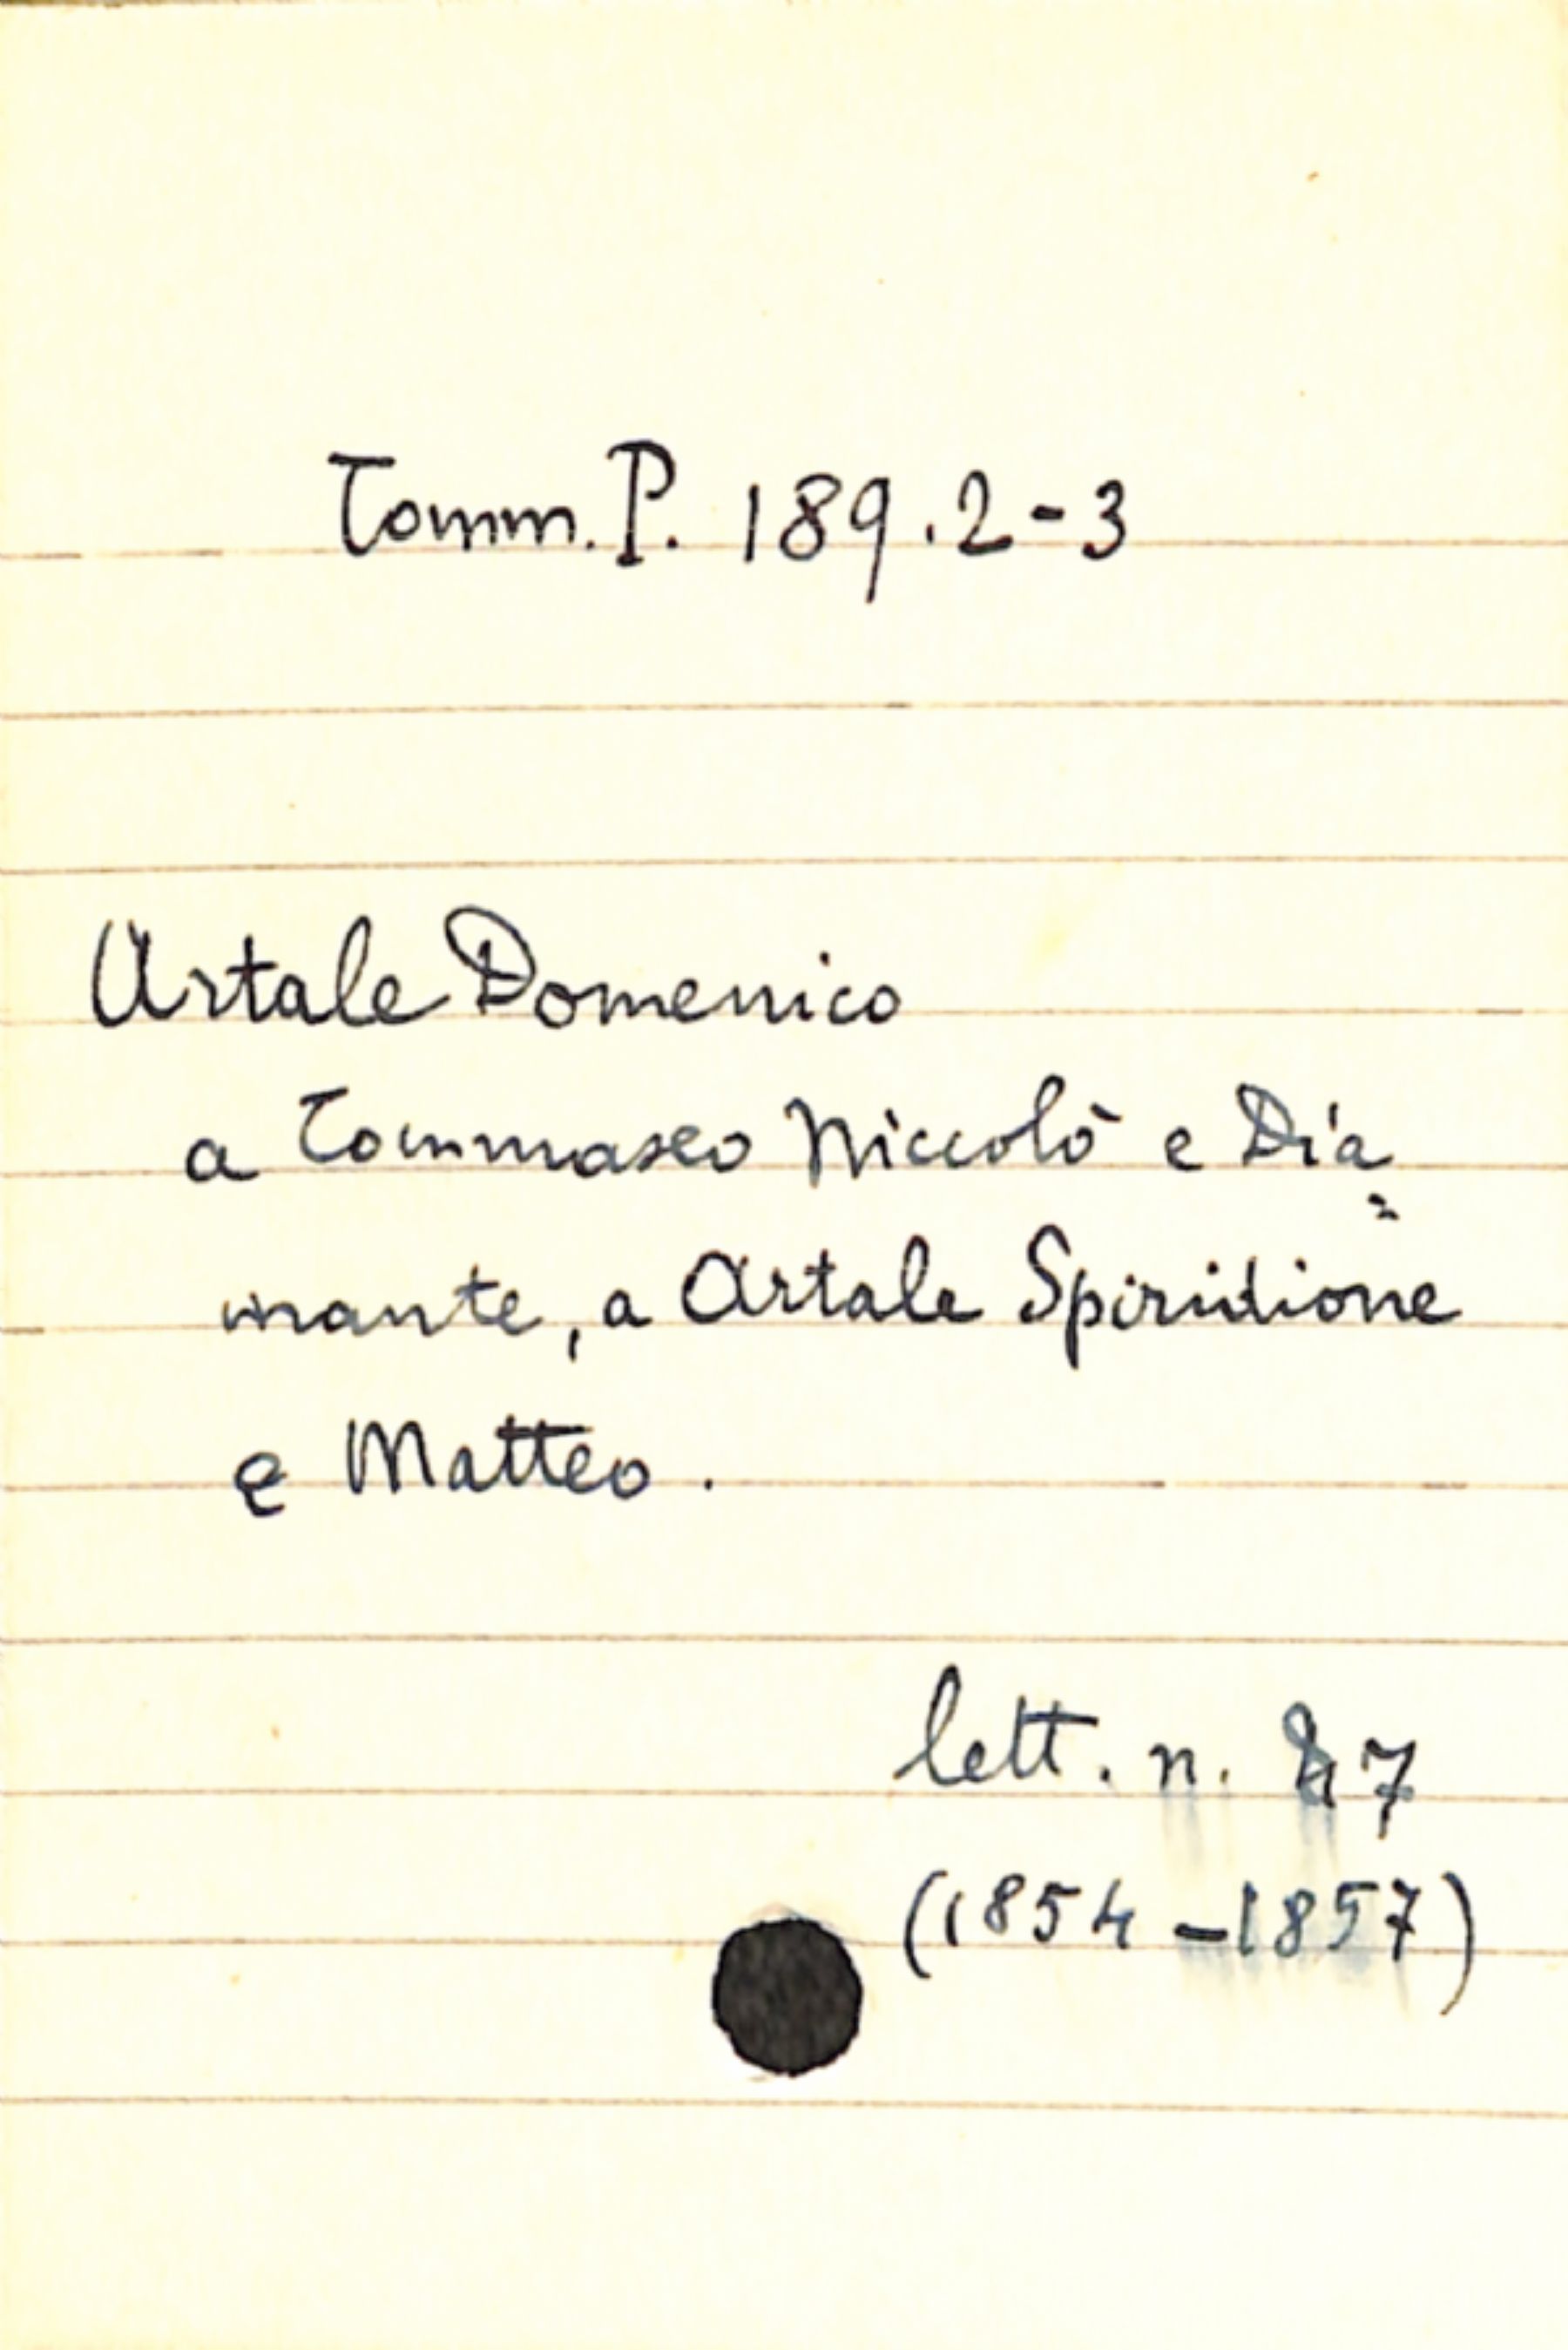 Tomm. P. 189.2-3
Artale Domenico
a Tommaseo Niccolò e Dia=
mante, a Artale Spiridione
e Matteo.
lett. n. 47
(1854-1857)